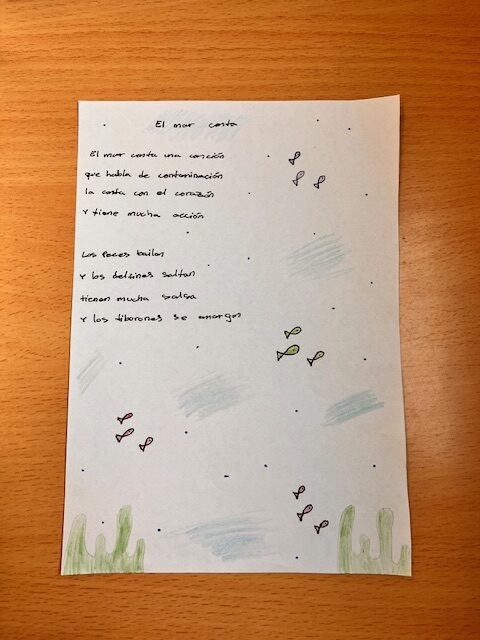 El mar canta
El mar canta una canción
que habla de contaminación
la canta con el corazón
y tiene mucha acción
Los Peces bailan
y los delfines saltan
tienen mucha salsa
y los tiburones se amargan